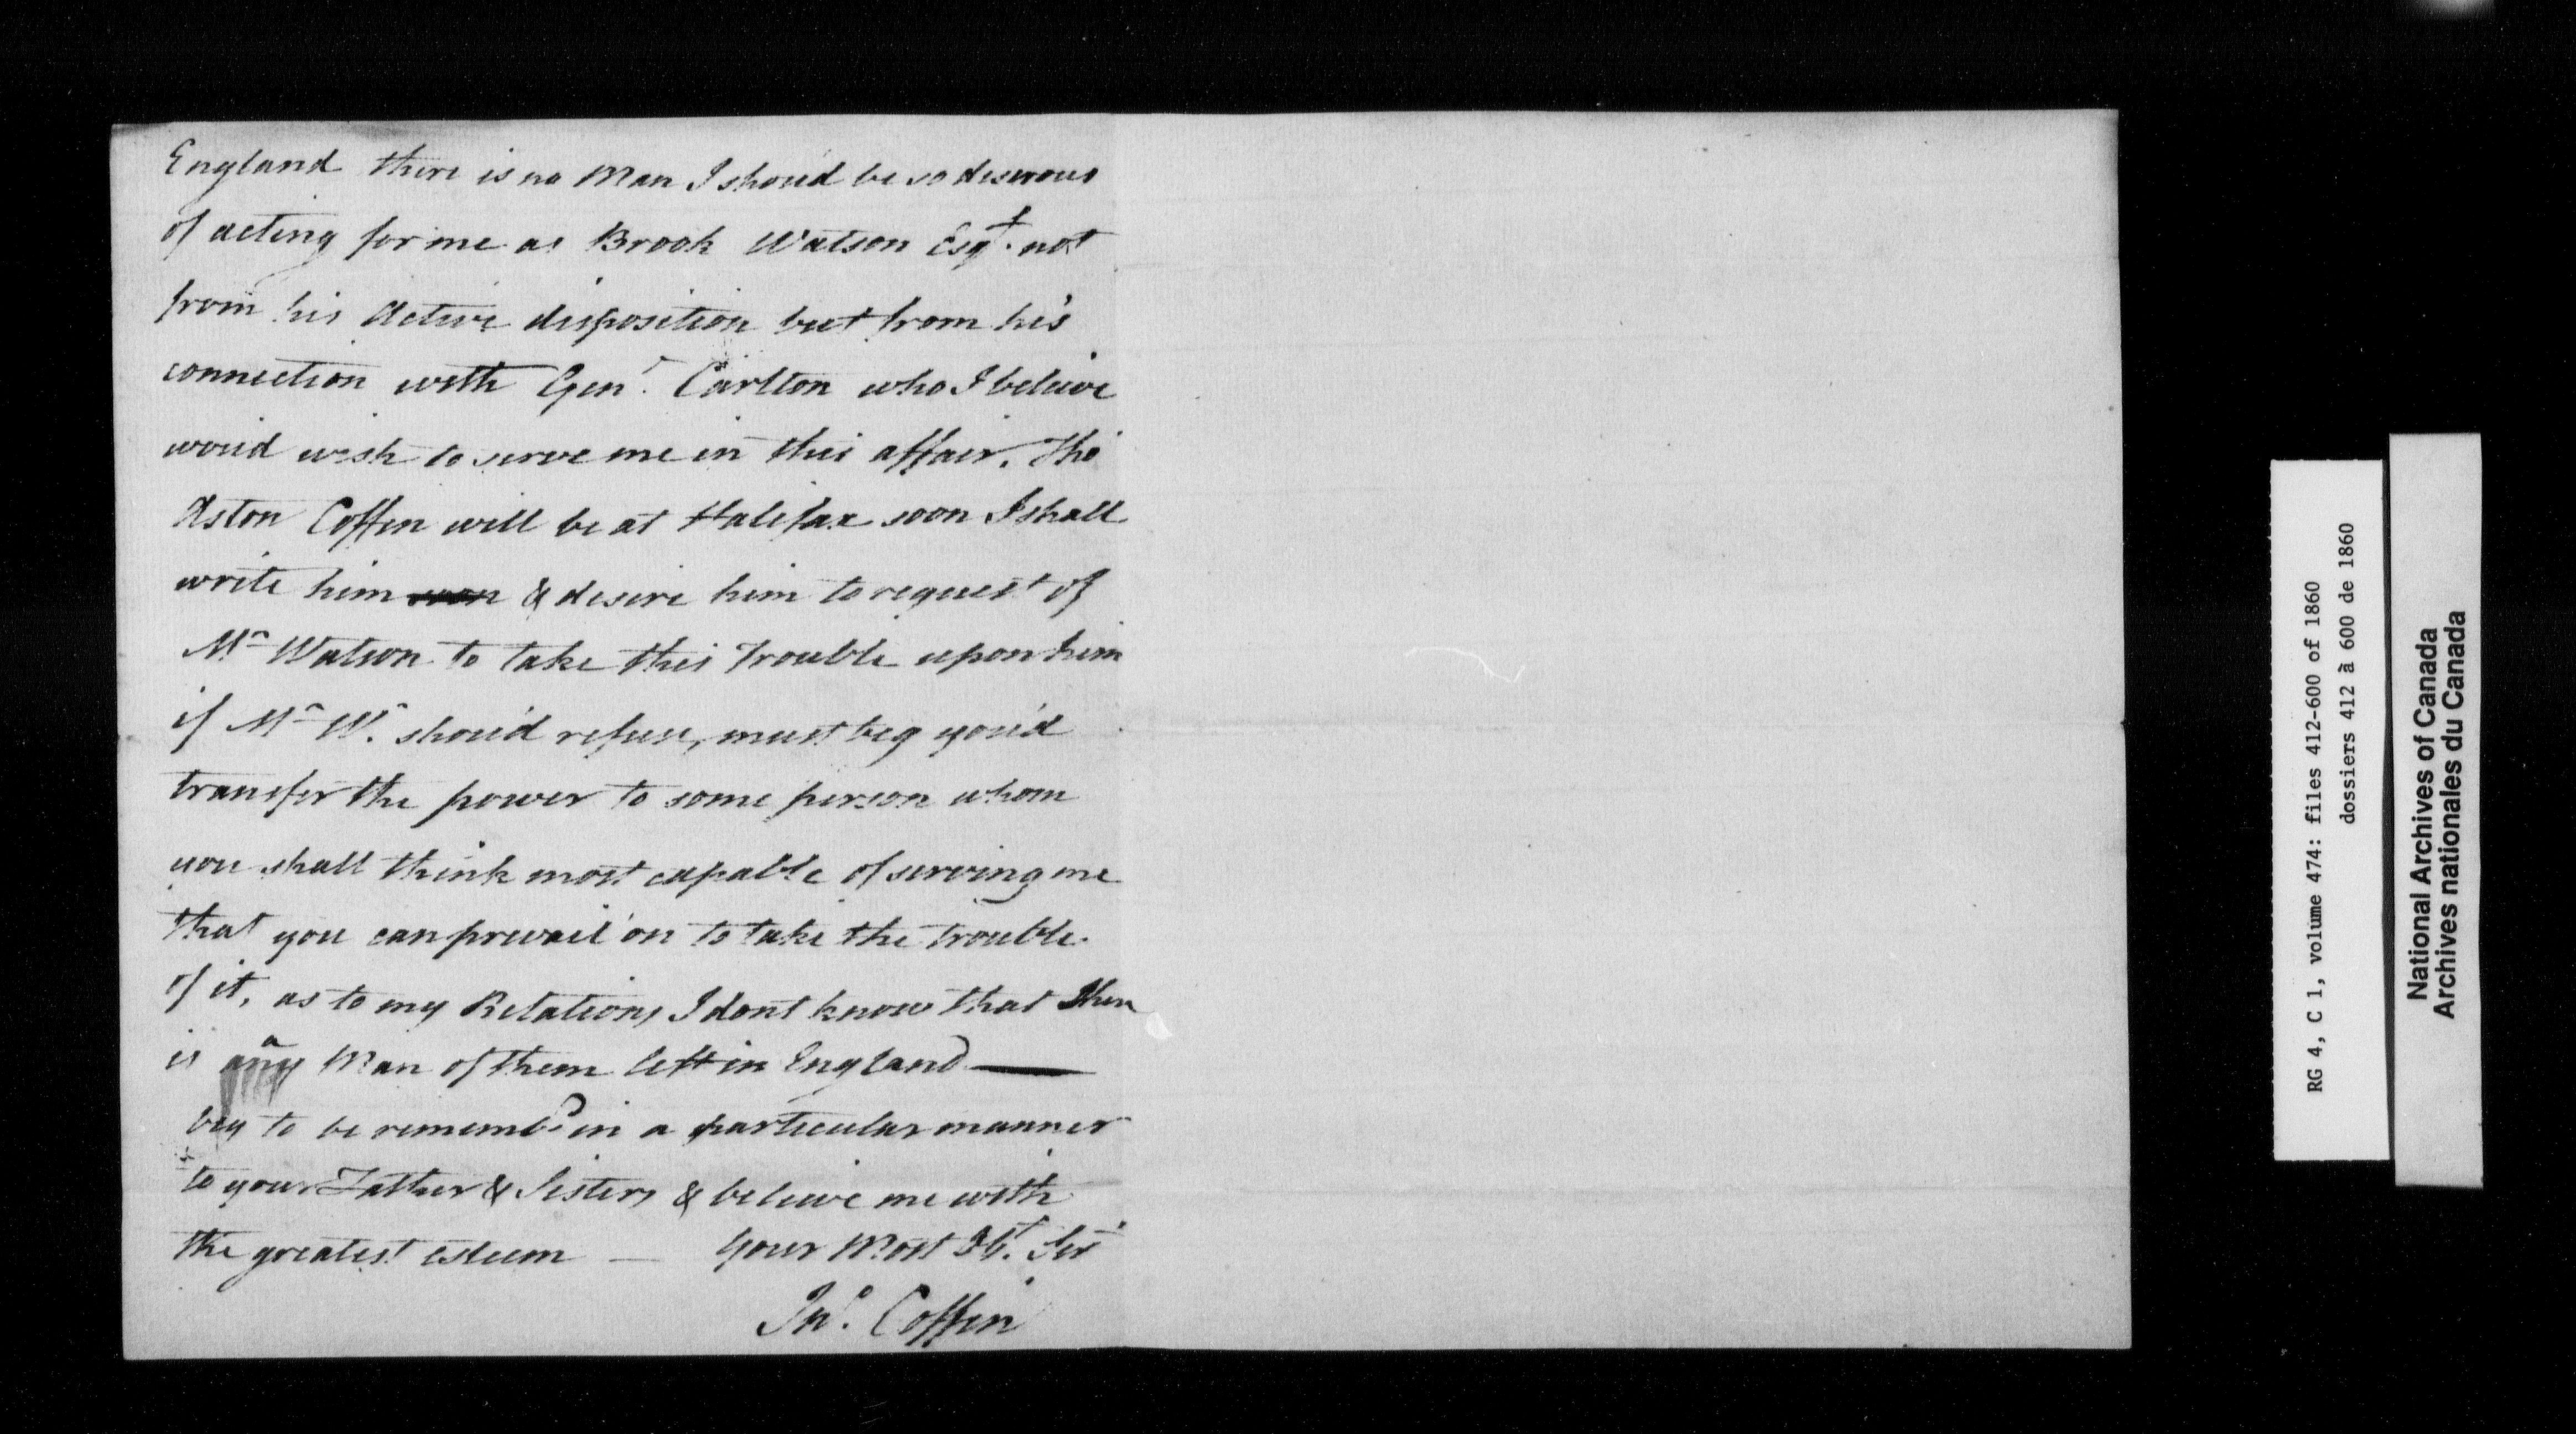 England there is no Man I shou'd be so desirous
of acting for me as Brook Watson Esqr. not
from his Active disposition but from his
connection with Genl. Carlton who I beleive
wou'd wish to serve me in this affair. Tho'
Aston Coffin will be at Halifax soon I shall
write him soon & desire him to request of
Mr Watson to take this Trouble upon him
if Mr W. shou'd refuse, must beg you'd
transfer the power to some person whom
you shall think most capable of serving me
that you can prevail on to take the trouble
of it, as to my Relations I dont know that there
is any Man of them left in England —
beg to be rememb'd in a particular manner
to your Father & Sisters & beleive me with
the greatest esteem — Your Most Ob't. Ser't
Jno. Coffin
RG 4, C 1, volume 474: files 412-600 of 1860
dossiers 412 à 600 de 1860
National Archives of Canada
Archives nationales du Canada